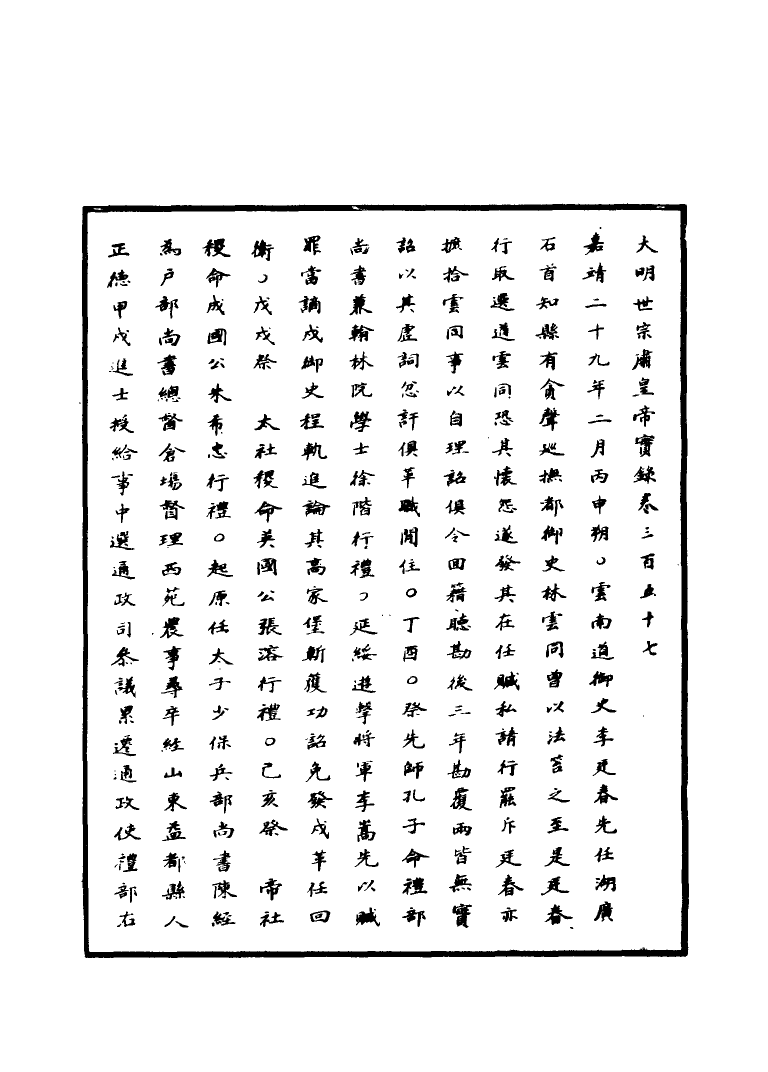 大明世宗肅皇帝實錄卷三百五十七
嘉靖二十九年二月丙申朔○雲南道御史李廷春先任湖廣
石首知縣有貪聲巡撫都御史林雲同曾以法笞之至是廷春
行取選道雲同恐其懷怨遂發其在任贓私請行罷斥廷春亦
摭拾雲同事以自理詔俱令回籍聽勘後三年勘覆兩皆無實
詔以其虛詞忿訐俱革職閒住○丁酉○祭先師孔子命禮部
尚書兼翰林院學士徐階行禮○延綏遊擊將軍李嵩先以贓
罪當謫戍御史程軌追論其高家堡斬獲功詔免發戍革任回
衛○戊戌祭　太社稷命英國公張溶行禮○己亥祭　帝社
稷命成國公朱希忠行禮○起原任太子少保兵部尚書陳經
為戶部尚書總督倉場督理西苑農事尋卒經山東益都縣人
正德甲戌進士授給事中選通政司參議累遷通政使禮部右